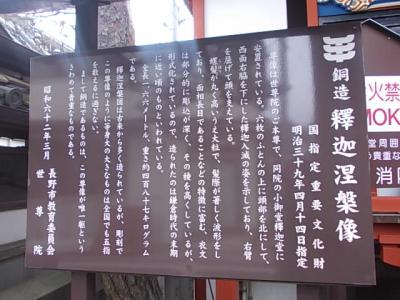 銅造 釋迦涅槃像
国指定重要文化財
明治三十九年四月十四日指定
尊像は世尊院のご本尊で、同院の小御堂釋迦堂に
安置されている。六枚のふとんの上に頭部を北にして、
西面右脇を下にした釋迦入滅の姿を示しており、右臂
を屈げて頭を支えている。
螺髪が丸く高いうえ大粒で、髪際が著しく波形をし
ており、面相長目であることなどの特徴に富む。衣文
は部分的に彫込が深く、その稜を高くしているが、
形式化されているので、造られたのは鎌倉時代の末期
に近い頃のものといわれている。
全長一、六六メートル 重さ約四百八十七キログラム
である。
釋迦涅槃図は古来から多く造られているが、彫刻で
この尊像のように等身大の大きなものは全国でも五指
を数えるに過ぎない。
まして銅造であるものは、この尊像が唯一躯という
きわめて貴重なものである。
昭和六十二年三月
長野市教育委員会
世尊院
火禁
MOK
堂周囲
の貴重な
消防